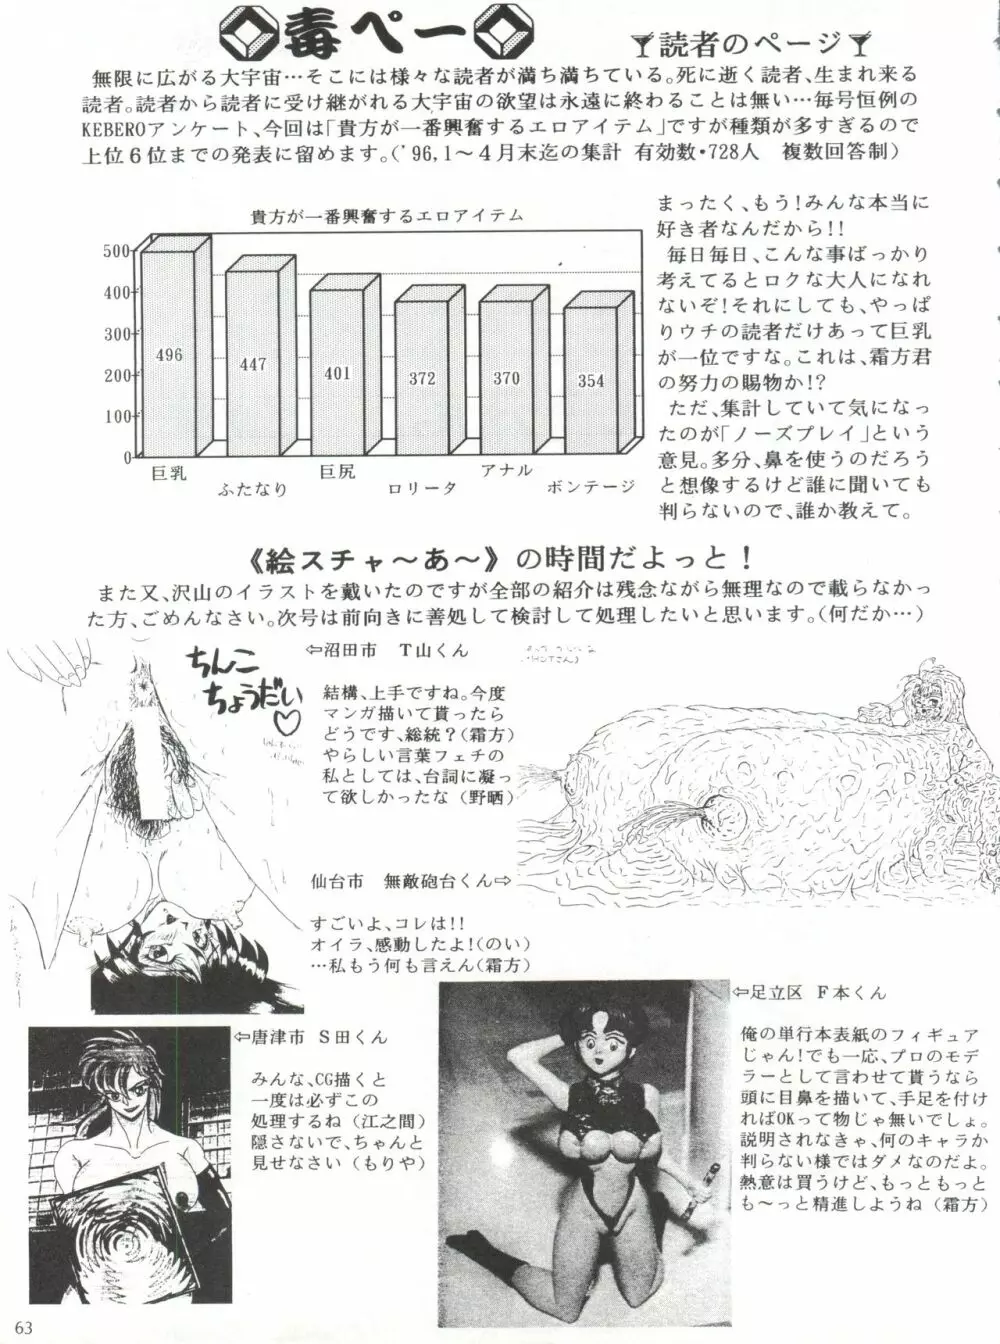 毒ペー
読者のページ
無限に広がる大宇宙…そこには様々な読者が満ち満ちている。死に逝く読者、生まれ来る
読者。読者から読者に受け継がれる大宇宙の欲望は永遠に終わることは無い…毎号恒例の
KEBEROアンケート、今回は「貴方が一番興奮するエロアイテム」ですが種類が多すぎるので
上位6位までの発表に留めます。('96,1～4月末迄の集計 有効数・728人 複数回答制)
貴方が一番興奮するエロアイテム
500
400
300
200
100
0
496
447
401
372
370
354
巨乳
ふたなり
巨尻
ロリータ
アナル
ボンテージ
まったく、もう!みんな本当に
好き者なんだから!!
毎日毎日、こんな事ばっかり
考えてるとロクな大人になれ
ないぞ!それにしても、やっぱ
りウチの読者だけあって巨乳
が一位ですな。これは、霜方君
の努力の賜物か!?
ただ、集計していて気になっ
たのが「ノーズプレイ」という
意見。多分、鼻を使うのだろう
と想像するけど誰に聞いても
判らないので、誰か教えて。
《絵スチャ～あ～》の時間だよっと!
また又、沢山のイラストを戴いたのですが全部の紹介は残念ながら無理なので載らなかっ
た方、ごめんなさい。次号は前向きに善処して検討して処理したいと思います。(何だか…)
ちんこ
ちょうだい♡
⇦沼田市 T山くん
結構、上手ですね。今度
マンガ描いて貰ったら
どうです、総統?(霜方)
やらしい言葉フェチの
私としては、台詞に凝っ
て欲しかったな(野晒)
仙台市 無敵砲台くん⇨
すごいよ、コレは!!
オイラ、感動したよ!(のい)
…私もう何も言えん(霜方)
⇦唐津市 S田くん
みんな、CG描くと
一度は必ずこの
処理するね(江之間)
隠さないで、ちゃんと
見せなさい(もりや)
⇦足立区 F本くん
俺の単行本表紙のフィギュア
じゃん!でも一応、プロのモデ
ラーとして言わせて貰うなら
頭に目鼻を描いて、手足を付け
ればOKって物じゃ無いでしょ。
説明されなきゃ、何のキャラか
判らない様ではダメなのだよ。
熱意は買うけど、もっともっと
も～っと精進しようね(霜方)
63